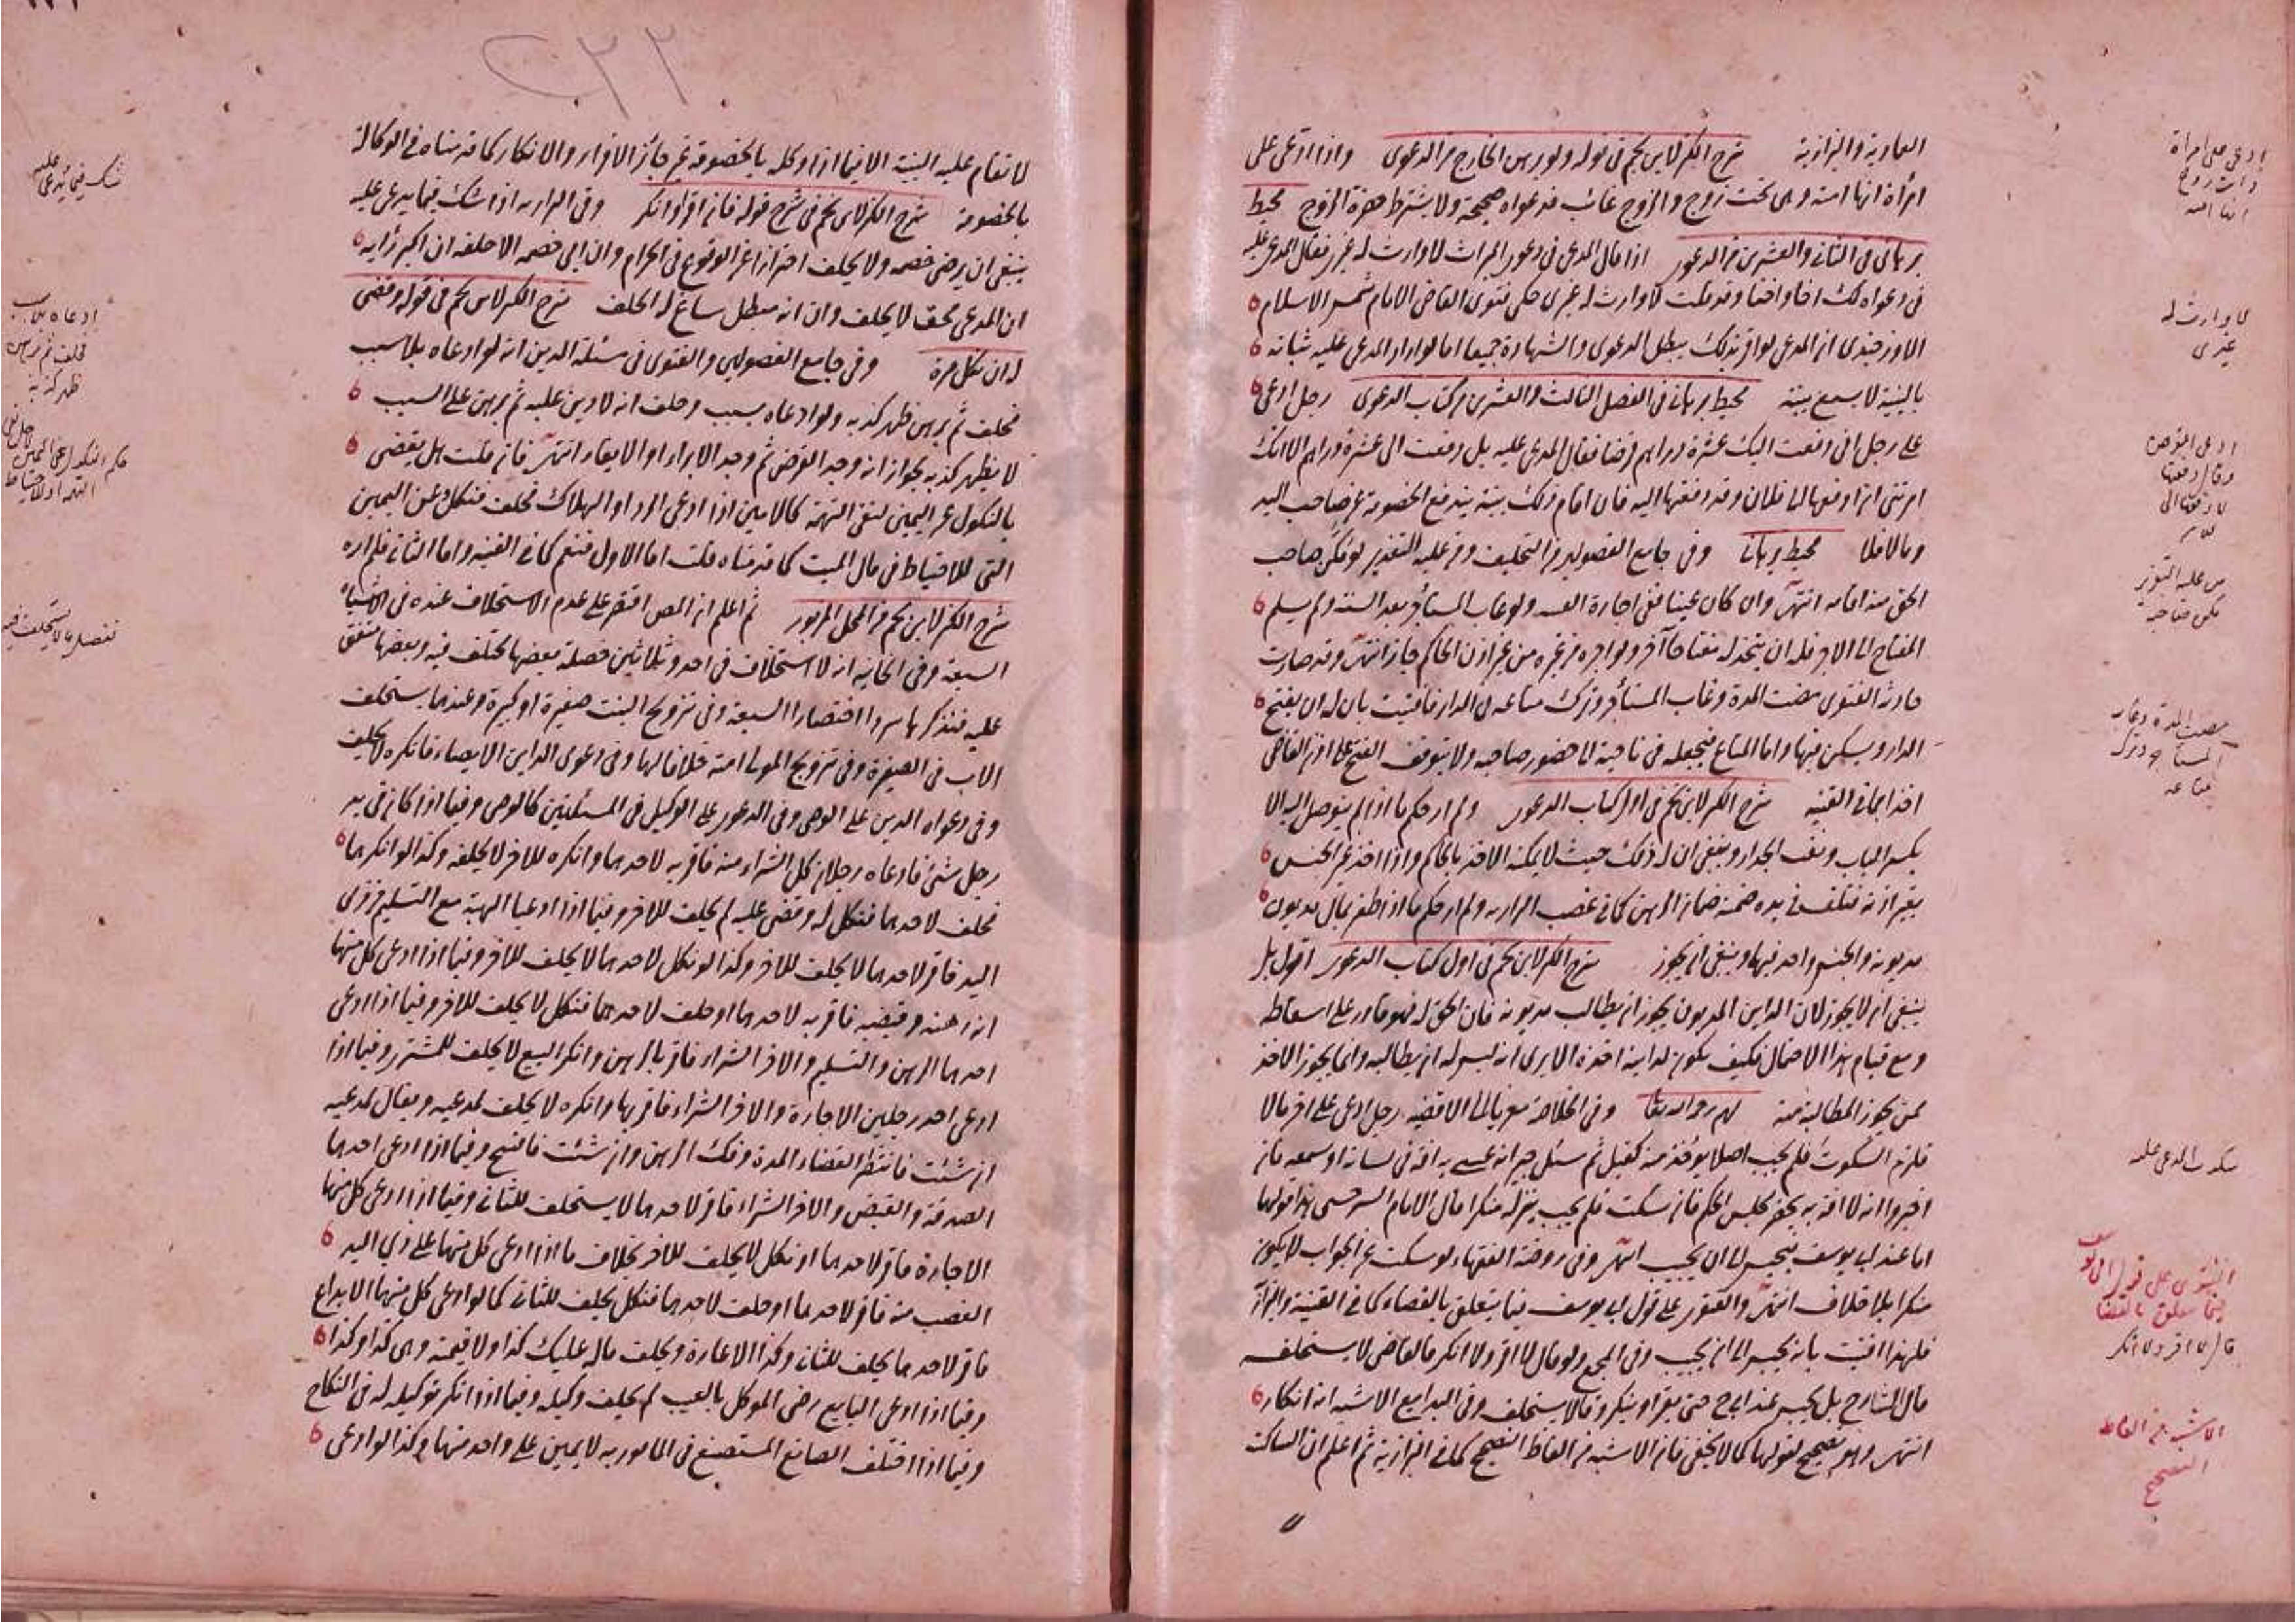 العمادية والبزازية شرح الكنز لابن نجيم في قوله ولو برهن الخارج من الدعوى واذا ادعى على
امرأة انها امته وهى تحت زوج والزوج غائب فدعواه صحيحة ولا يشترط حضرة الزوج محيط
برهانى فى الثانى والعشرين من الدعوى اذا قال المدعى فى دعوى الميراث لا وارث له غيرى فقال المدعى عليه
فى دعواه لك اخا واختا وقد قلت لا وارث له غيرى حكى فتوى القاضى الامام شمس الاسلام
الاوزجندى ان المدعى لو اقر بذلك يبطل الدعوى والشهادة جميعا اما لو اراد المدعى عليه اثباته
بالبينة لا يسمع بينته محيط برهانى فى الفصل الثالث والعشرين من كتاب الدعوى رجل ادعى
على رجل انى دفعت اليك عشرة دراهم قرضا فقال المدعى عليه بل دفعت الى عشرة دراهم الا انك
امرتنى ان ادفعها الى فلان وقد دفعتها اليه فان اقام ذلك بينة يندفع الخصومة عن صاحب اليد
ومالا فلا محيط برهانى وفى جامع الفصولين من التحليف ومن عليه التعذير لو مكن صاحب
الحق منه اقامه انتهى وان كان عينا ففى اجارة القنية ولو غاب المستأجر بعد السنة ولم يسلم
المفتاح الى الاجر فله ان يتخذ له مفتاحا آخر ولو اجره من غيره من غير اذن الحاكم جاز انتهى وقد صارت
حادثة الفتوى مضت المدة وغاب المستأجر وترك متاعه فى الدار فافتيت بان له ان يفتح
الدار ويسكن فيها واما المتاع فيجعله فى ناحية الى حضور صاحبه ولا يتوقف الفتح على اذن القاضى
اخذا مما فى القنية شرح الكنز لابن نجيم فى اول كتاب الدعوى ولم ار حكم ما اذا لم يتوصل اليه الا
بكسر الباب ونقب الجدار وينبغى ان له ذلك حيث لا يمكنه الاخذ بالحاكم واذا اخذ غير الجنس
بغير اذنه فتلف فى يده ضمنه ضمان الرهن كما فى غصب البزازية ولم ار حكم ما اذا ظفر بمال مديون
مديونه والجنس واحد فيها وينبغى ان يجوز شرح الكنز لابن نجيم فى اول كتاب الدعوى اقول بل
ينبغى ان لا يجوز لان الداين المديون يجوز ان يطالب مديونه فان الحق له فهو قادر على اسقاطه
ومع قيام هذا الاحتمال فكيف يكون لداينه اخذه الا يرى انه ليس له ان يطالبه وانما يجوز الاخذ
لمن يجوز المطالبة منه وفى الخلاصة معزيا الى الاقضية رجل ادعى على اخر مالا
فلزم السكوت فلم يجب اصلا يؤخذ منه كفيل ثم سئل جيرانه عسى به افة فى لسانه او سمعه فان
اخبروا انه لا افة به يحضر مجلس الحكم فان سكت فلم يجب ينزله منكرا قال الامام السرخسى هذا قولهما
اما عند ابى يوسف فيحبس الى ان يجيب انتهى وفى روضة الفقهاء لو سكت عن الجواب لا يكون
منكرا بلا خلاف انتهى والفتوى على قول ابى يوسف فيما يتعلق بالقضاء كما فى القنية والبزازية
فلهذا افتيت بانه يحبس الى ان يجيب وفى المجمع ولو قال لا اقر ولا انكر فالقاضى لا يستحلفه
قال الشارح بل يحبس عند ابى ح حتى يقر او ينكر وقالا يستحلف وفى البدايع الاشبه انه انكار
انتهى وهو تصحيح لقولهما كما لا يخفى فان الاشبه من الفاظ التصحيح كما فى البزازية ثم اعلم ان الساكت
ادعى على امرأة
ذات زوج
انها امته
لا وارث له
غيرى
ادعى القرض
وقال دفعتها
مضت المدة وغاب
المستأجر وترك
متاعه
سكوت المدعى عليه
الفتوى على قول ابى يوسف
فيما يتعلق بالقضا
قال لا اقر ولا انكر
الاشبه من الفاظ
التصحيح
٢٢٢
لا تقام عليه البينة الا فيما اذا وكله بالخصومة غير جائز الاقرار والانكار كما قدمناه فى الوكالة
بالخصومة شرح الكنز لابن نجيم فى شرح قوله فان اقر او انكر وفى البزازية اذا شك فيما يدعى عليه
ينبغى ان يرضى خصمه ولا يحلف احترازا عن الوقوع فى الحرام وان ابى خصمه الا حلفه ان اكبر رأيه
ان المدعى محق لا يحلف وان انه مبطل ساغ له الحلف شرح الكنز لابن نجيم فى قوله وقضى
له ان نكل مرة وفى جامع الفصولين والفتوى فى مسئلة الدين انه لو ادعاه بلا سبب
فحلف ثم برهن ظهر كذبه ولو ادعاه بسبب وحلف انه لا دين عليه ثم برهن على السبب
لا يظهر كذبه لجواز انه وجد القرض ثم وجد الابراء او الايفاء انتهى فان قلت هل يقضى
بالنكول عن اليمين لنفى التهمة كالامين اذا ادعى الرد او الهلاك فحلف فنكل وعن اليمين
التى للاحتياط فى مال الميت كما قدمناه قلت اما الاول فنعم كما فى القنية واما الثانى فلم اره
شرح الكنز لابن نجيم من المحل المزبور ثم اعلم ان المص اقتصر على عدم الاستحلاف عنده فى الاشياء
السبعة وفى الخانية انه لا استحلاف فى احد وثلاثين خصلة بعضها مختلف فيه وبعضها متفق
عليه فنذكرها سردا اختصارا السبعة وفى تزويج البنت صغيرة او كبيرة وعندهما يستحلف
الاب فى الصغيرة وفى تزويج المولى امته خلافا لهما وفى دعوى الداين الايصاء فانكره لا يحلف
وفى دعواه الدين على الوصى وفى الدعوى على الوكيل فى المسئلتين كالوصى وفيما اذا كان فى يد
رجل شئ فادعاه رجلان كل الشراء منه فاقر به لاحدهما وانكره للاخر لا يحلفه وكذا لو انكرهما
فحلف لاحدهما فنكل له وقضى عليه لم يحلف للاخر وفيما اذا ادعيا الهبة مع التسليم من ذى
اليد فاقر لاحدهما لا يحلف للاخر وكذا لو نكل لاحدهما لا يحلف للاخر وفيما اذا ادعى كل منهما
انه رهنه وقبضه فاقر به لاحدهما او حلف لاحدهما فنكل لا يحلف للاخر وفيما اذا ادعى
احدهما الرهن والتسليم والاخر الشراء فاقر بالرهن وانكر البيع لا يحلف للمشترى وفيما اذا
ادعى احد رجلين الاجارة والاخر الشراء فاقر بها وانكره لا يحلف لمدعيه ويقال لمدعيه
ان شئت فانتظر انقضاء المدة وفك الرهن وان شئت فافسخ وفيما اذا ادعى احدهما
الصدقة والقبض والاخر الشراء فاقر لاحدهما لا يستحلف للثانى وفيما اذا ادعى كل منهما
الاجارة فاقر لاحدهما او نكل لا يحلف للاخر بخلاف ما اذا ادعى كل منهما على ذى اليد
الغصب منه فاقر لاحدهما او حلف لاحدهما فنكل يحلف للثانى كما لو ادعى كل منهما الايداع
فاقر لاحدهما يحلف للثانى وكذا الاعارة ويحلف ماله عليك كذا ولا قيمته وهى كذا وكذا
وفيما اذا ادعى البايع رضى الموكل بالعيب لم يحلف وكيله وفيما اذا انكر توكيله له فى النكاح
وفيما اذا اختلف الصانع المستصنع فى المامور به لا يمين على واحد منهما وكذا لو ادعى
شك فيما يدعى عليه
ادعاه بلا سبب
فحلف ثم برهن
ظهر كذبه
تفصيل ما لا يستحلف فيه